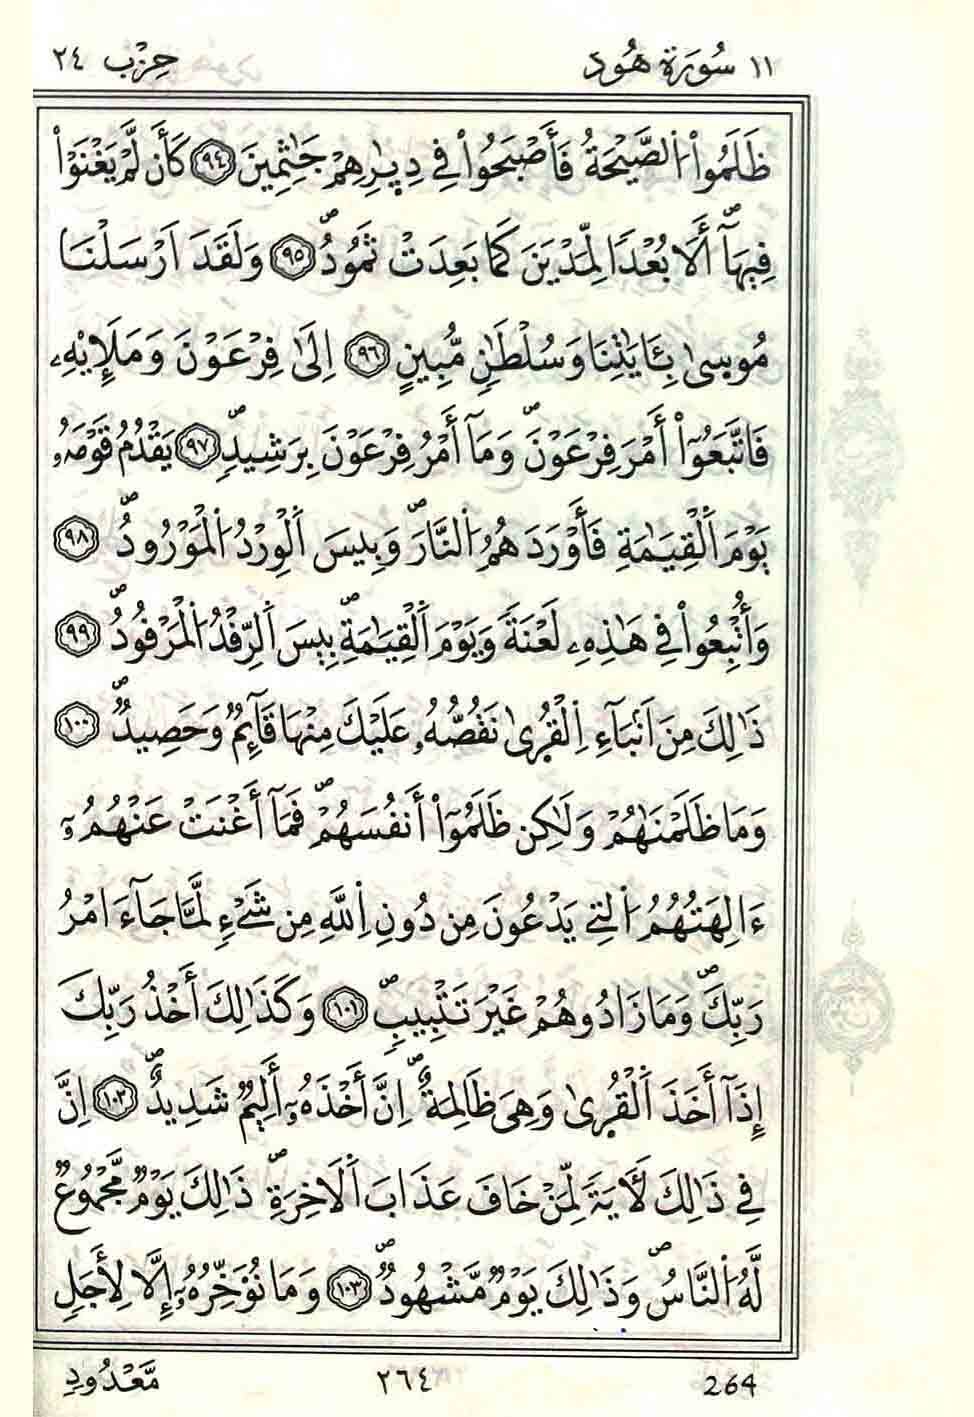 ١١ سُورَة هُود حِزْب ٢٤
ظَلَمُواْ اُلصَّيْحَةُ فَأَصْبَحُواْ فِي دِيٰ۪رِهِمْ جَٰثِمِينَ ۝٩٤ كَأَن لَّمْ يَغْنَوْاْ
فِيهَآۖ أَلَا بُعْدٗا لِّمَدْيَنَ كَمَا بَعِدَتْ ثَمُودُۖ ۝٩٥ وَلَقَدَ اَرْسَلْنَا
مُوس۪يٰ بِـَٔايَٰتِنَا وَسُلْطَٰنٖ مُّبِينٍ ۝٩٦ اِلَىٰ فِرْعَوْنَ وَمَلَإِيْهِۦ
فَاتَّبَعُوٓاْ أَمْرَ فِرْعَوْنَۖ وَمَآ أَمْرُ فِرْعَوْنَ بِرَشِيدٖۖ ۝٩٧ يَقْدُمُ قَوْمَهُۥ
يَوْمَ اَلْقِيَٰمَةِ فَأَوْرَدَهُمُ اُلنَّارَۖ وَبِيسَ اَلْوِرْدُ اُلْمَوْرُودُۖ ۝٩٨
وَأُتْبِعُواْ فِي هَٰذِهِۦ لَعْنَةٗ وَيَوْمَ اَلْقِيَٰمَةِۖ بِيسَ اَلرِّفْدُ اُلْمَرْفُودُۖ ۝٩٩
ذَٰلِكَ مِنَ اَنۢبَآءِ اِلْقُر۪يٰ نَقُصُّهُۥ عَلَيْكَ مِنْهَا قَآئِمٞ وَحَصِيدٞۖ ۝١٠٠
وَمَا ظَلَمْنَٰهُمْ وَلَٰكِن ظَلَمُوٓاْ أَنفُسَهُمْۖ فَمَآ أَغْنَتْ عَنْهُمُۥٓ
ءَالِهَتُهُمُ اُلتِے يَدْعُونَ مِن دُونِ اِللَّهِ مِن شَےْءٖ لَّمَّا جَآءَ امْرُ
رَبِّكَۖ وَمَا زَادُوهُمْ غَيْرَ تَتْبِيبٖۖ ۝١٠١ وَكَذَٰلِكَ أَخْذُ رَبِّكَ
إِذَآ أَخَذَ اَلْقُر۪يٰ وَهِيَ ظَٰلِمَةٌۖ اِنَّ أَخْذَهُۥٓ أَلِيمٞ شَدِيدٌۖ ۝١٠٢ اِنَّ
فِي ذَٰلِكَ لَأٓيَةٗ لِّمَنْ خَافَ عَذَابَ اَلَاخِرَةِۖ ذَٰلِكَ يَوْمٞ مَّجْمُوعٞ
لَّهُ اُلنَّاسُۖ وَذَٰلِكَ يَوْمٞ مَّشْهُودٞۖ ۝١٠٣ وَمَا نُؤَخِّرُهُۥٓ إِلَّا لِأَجَلٖ
مَّعْدُودٖ ٢٦٤ 264